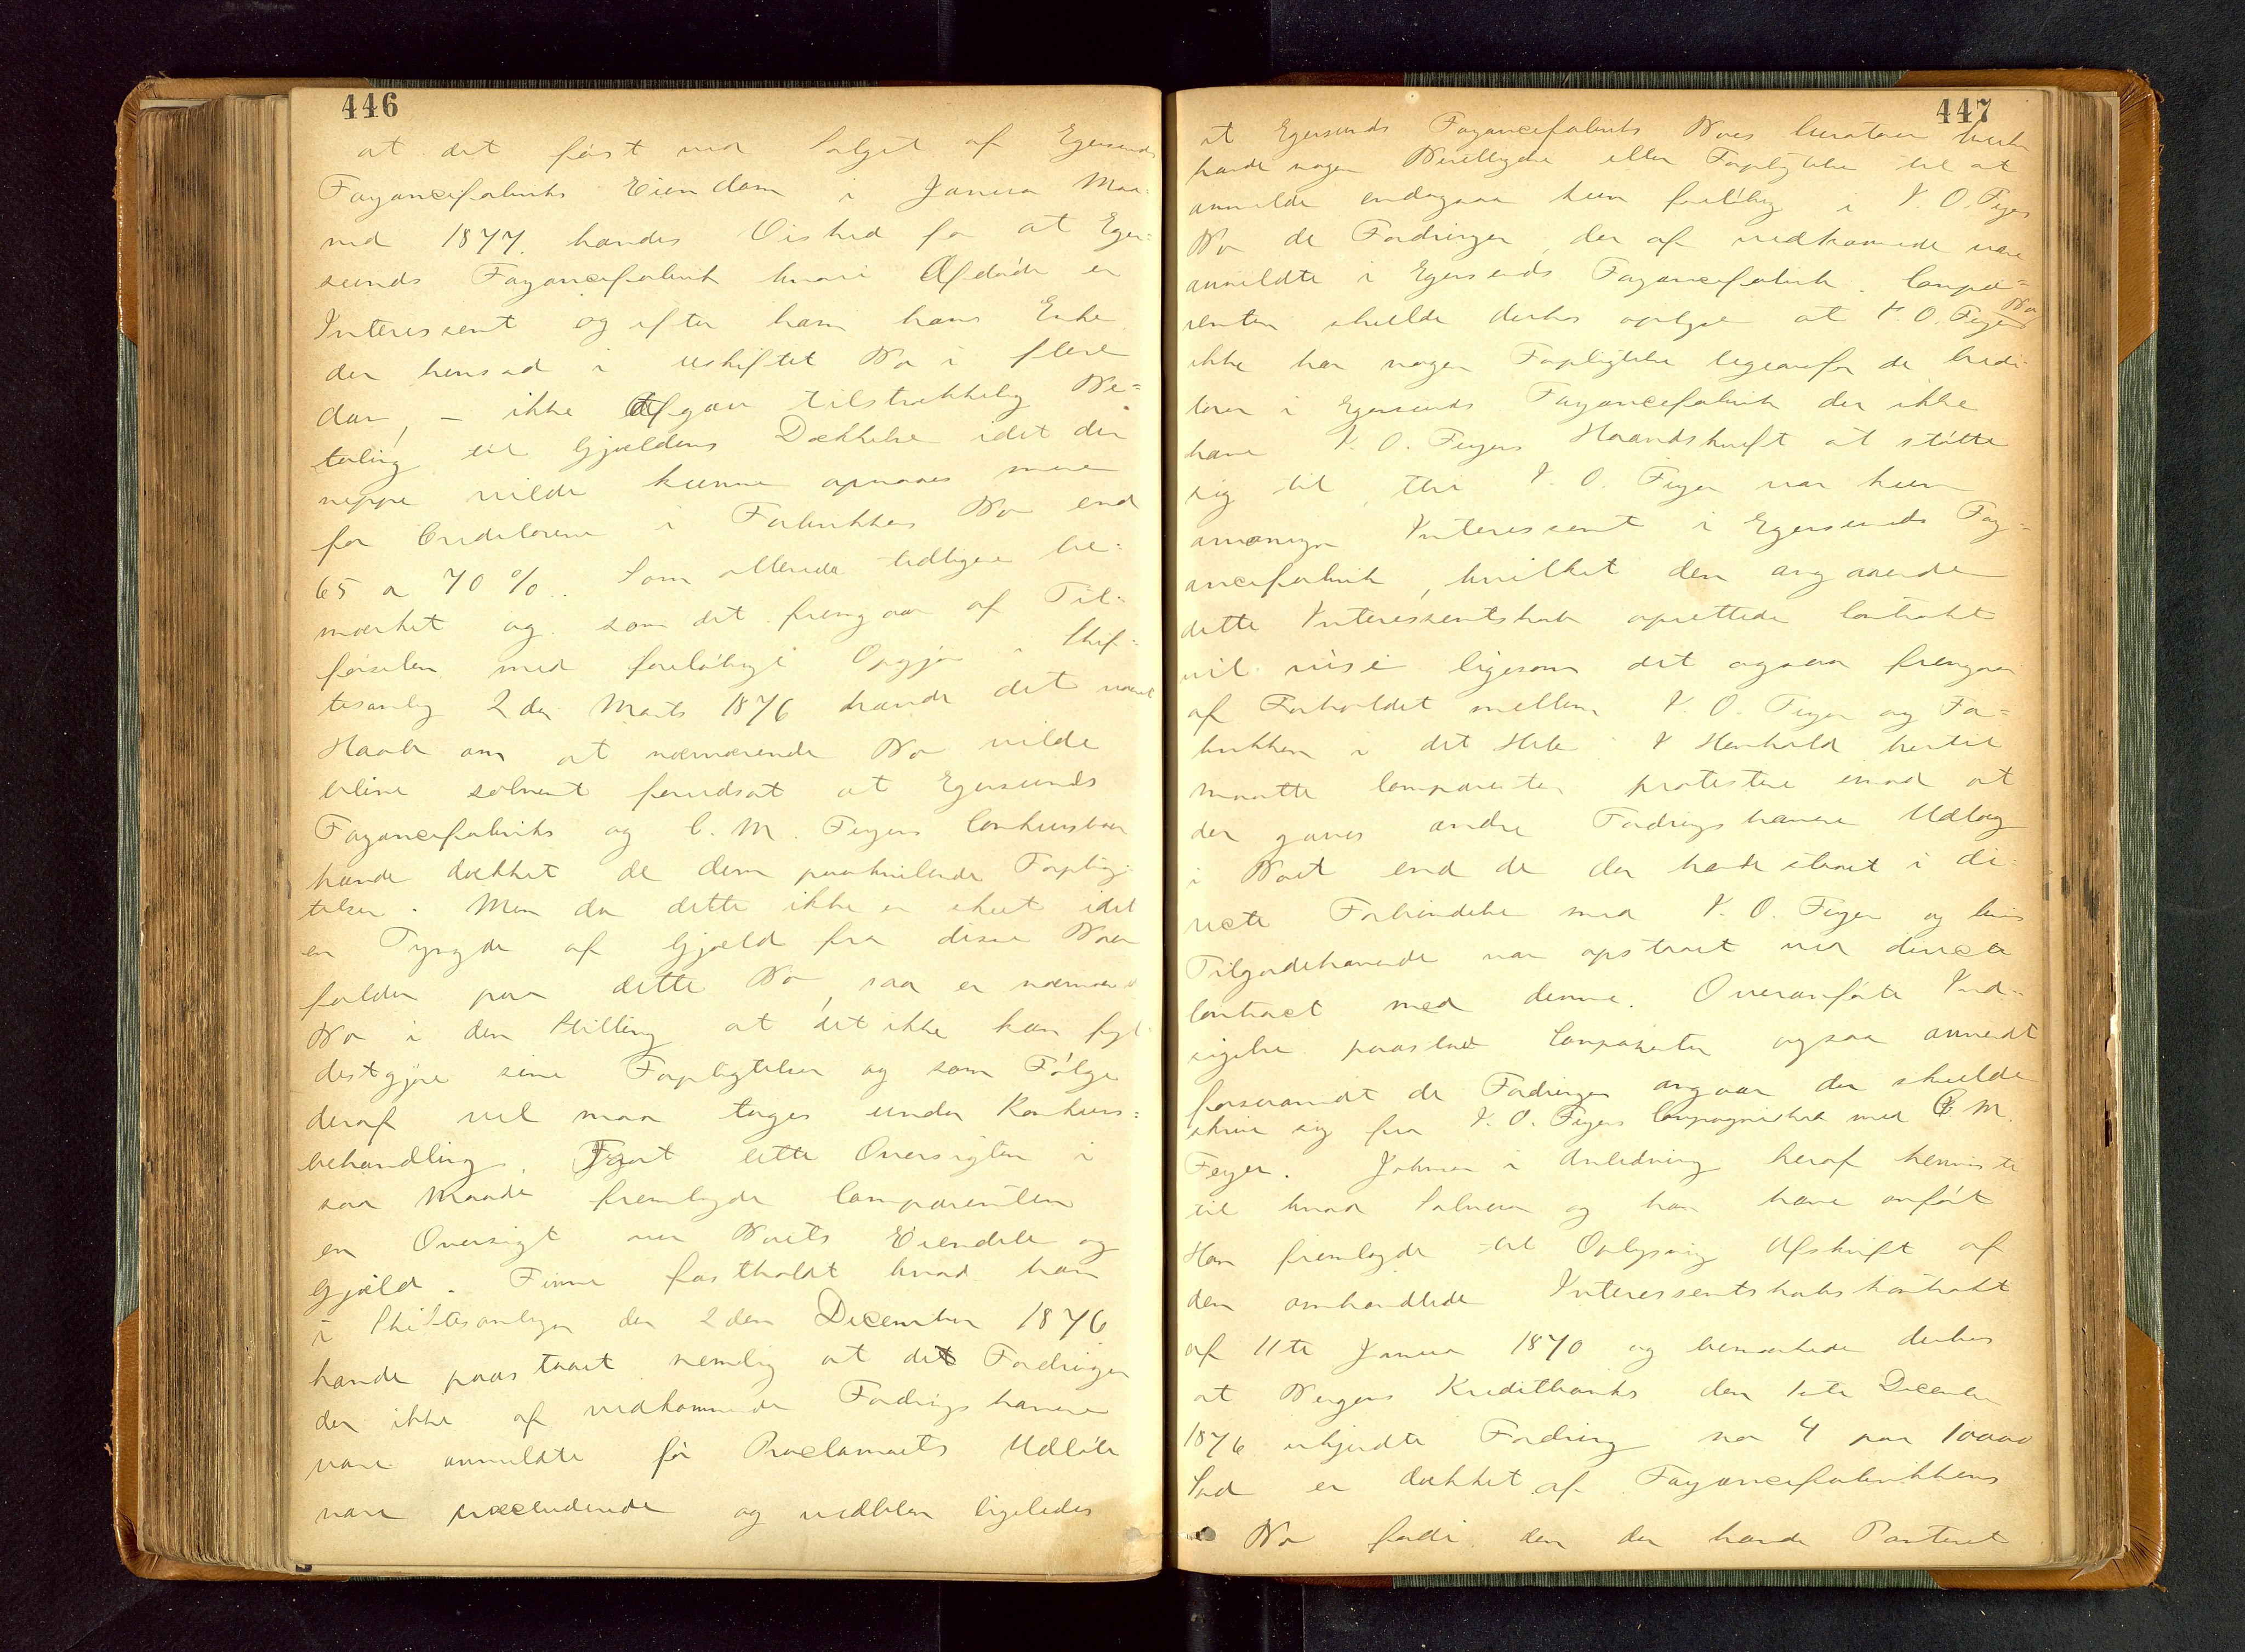 446
at det først ved Salget af Egersunds
Fayancefabriks Eiendom i Januar Maa-
ned 1877 havdes Vished for at Eger-
sunds Fayancefabrik hvori Afdøde er
Interessent og efter ham hans Enke
der hensad i uskiftet Bo i flere
Aar, – ikke afgav tilstrækkelig Be-
taling til Gjældens Dækkelse idet der
neppe vilde kunne opnaaes mere
for Creditorerne i Fabrikkens Bo end
65 a 70 %. Som allerede tidligere be-
mærket og som det fremgaar af Til-
førselen med foreløbigt Opgjør i Skif-
tesamling 2den Marts 1876 havde det været
Haab om at nærværende Bo vilde
blive solvent forudsat at Egersunds
Fayancefabriks og C. M. Feyers Conkursboer
havde dækket de dem paahvilende Forplig-
telser. Men da dette ikke er skeet idet
en Tyngde af Gjæld fra disse Boer
falder paa dette Bo, saa er nærværende
Bo i den Stilling at det ikke kan fyl-
destgjøre sine Forpligtelser og som Følge
deraf vel maa tages under Konkurs-
behandling. Fort dette Oversigten i
saa Maade fremlagde Comparenten
en Oversigt over Boets Eiendele og
Gjæld. Finne fastholdt hvad han
i Skiftesamlingen den 2den December 1876
havde paastaaet nemlig at de Fordringer
der ikke af vedkommende Fordringshavere
vare anmeldte før Proclamaets Udløb
vare præcluderede og vedblev ligeledes
447
at Egersunds Fayancefabriks Boes Curatorer hverken
havde nogen Berettigelse eller Forpligtelse til at
anmelde endogsaa kun foreløbig i J. O. Feyers
Bo de Fordringer, der af vedkommende vare
anmeldte i Egersunds Fayancefabrik. Compa-
renten skulde derhos oplyse at J. O. Feyers Bo
ikke har nogen Forpligtelse ligeoverfor de Credi-
torer i Egersunds Fayancefabrik der ikke
have J. O. Feyers Haandskrift at støtte
sig til thi J. O. Feyer var kun
anonym Interessent i Egersunds Fay-
ancefabrik, hvilket den angaaende
dette Interessentskab oprettede Contrakt
vil vise ligesom det ogsaa fremgaar
af Forholdet mellem J. O. Feyer og Fa-
brikken i det Hele. I Henhold hertil
maatte Comparenten protestere imod at
der gaves andre Fordringshavere Udlæg
i Boet end de der havde staaet i di-
recte Forbindelse med J. O. Feyer og hvis
Tilgodehavende var opstaaet ved directe
Contract med denne. Overanførte Ind-
sigelse paastod Comparenten ogsaa anvendt
forsaavidt de Fordringer angaar der skulde
skrive sig fra J. O. Feyers Compagniskab med C. M.
Feyer. Johnsen i Anledning heraf henviste
til hvad Salvesen og han have anført
Han fremlagde til Oplysning Afskrift af
den omhandlede Interessentskabskontrakt
af 11te Januar 1870 og bemærkede derhos
at Bergens Kreditbanks den 1ste December
1876 udgjordte Fordring No 4 paa 10000
Spd er dækket af Fayancefabrikkens
Bo fordi den der havde Panteret